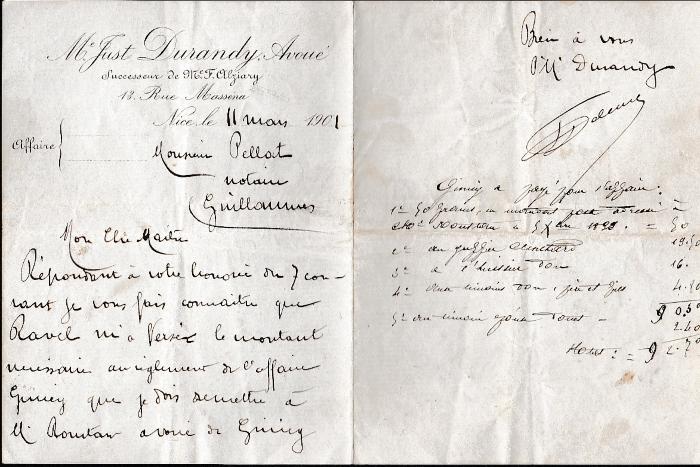 Me Just Durandy, Avoué
Successeur de Me F. Alziary
13. Rue Masséna
Nice, le 11 mars 1901
Affaire
Monsieur Pellat
notaire
Guillaumes
Mon Cher Maitre
Répondant à votre honoré du 7 cou-
rant je vous fais connaître que
Ravel m'a versé le montant
nécessaire au règlement de l'affaire
Giniey que je dois remettre à
M. Roustan avoué de Giniey
Bien à vous
P. Me Durandy
Giniey a payé pour l'affaire:
1º 50 francs, un mandat post adressé à
Me Roustan le 5 Xbre 1898. = 50
2º au greffier 19.50
3º à l'huissier Don 16.
4º aux témoins Don, père et fils 4.50
5º au témoin
90.50
2.40
Total: = 92.70